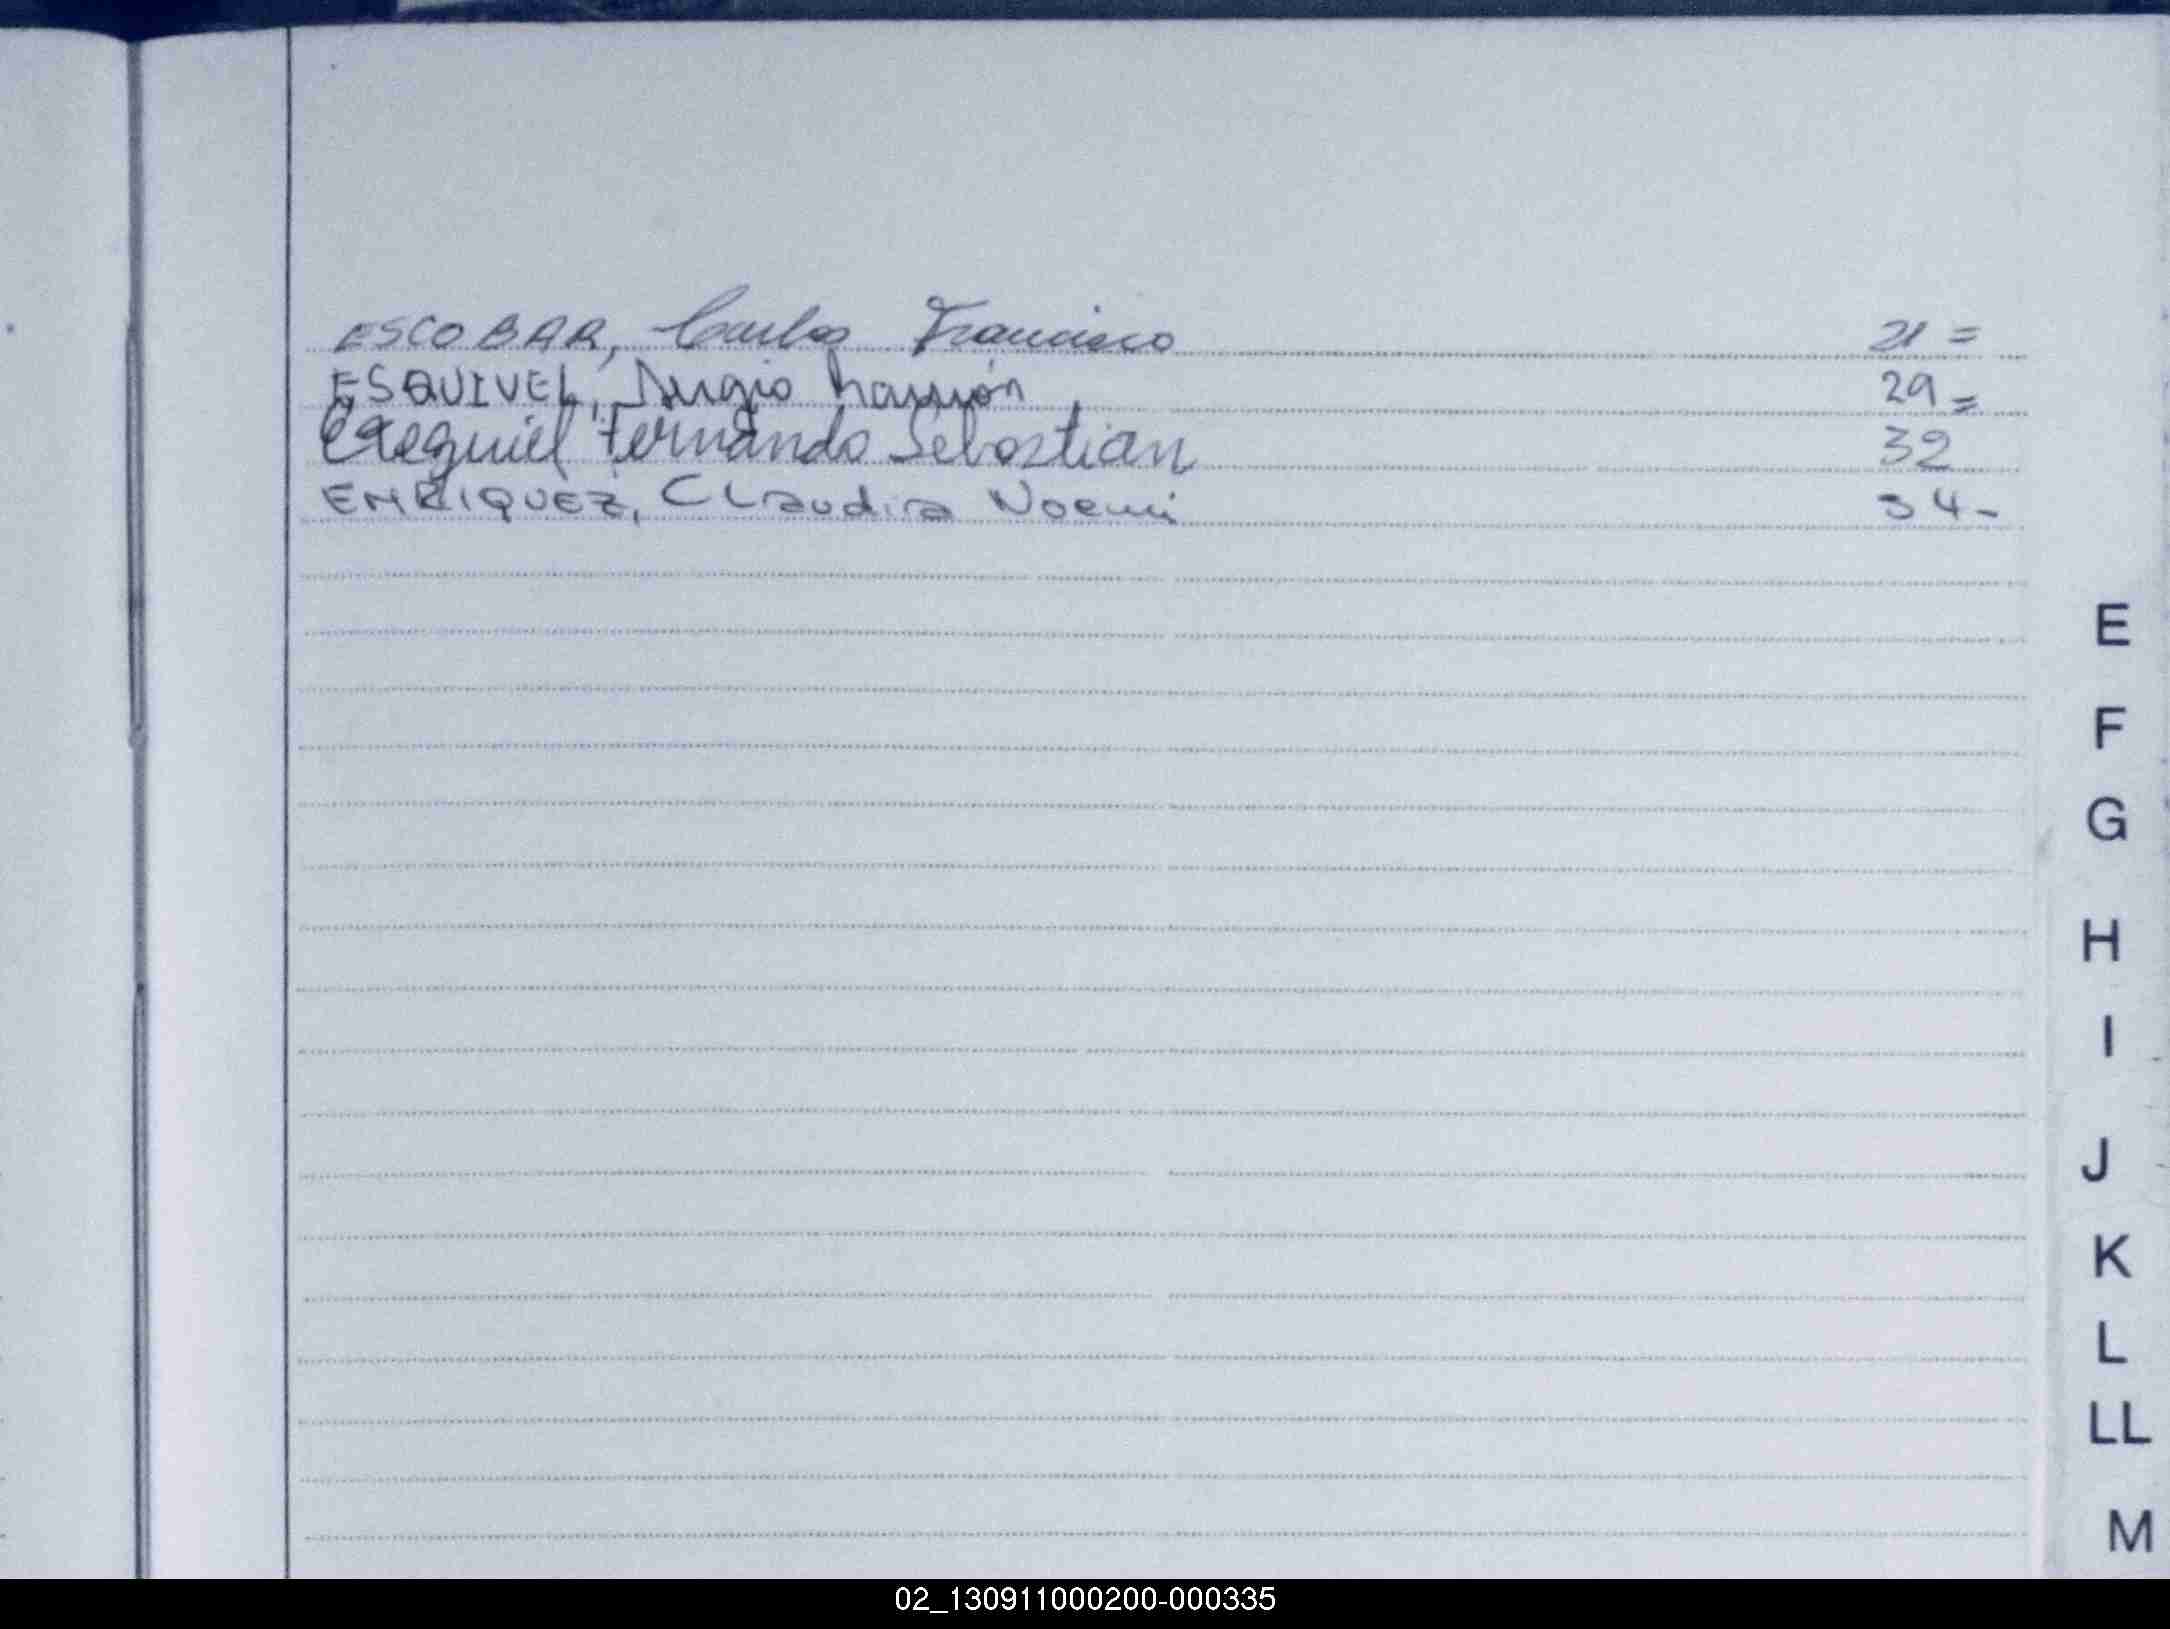 ESCOBAR, Carlos Francisco 21 =
ESQUIVEL, Sergio Ramón 29 =
Exequiel Fernando Sebastian 32
ENRIQUEZ, Claudia Noemi 34-
E
F
G
H
I
J
K
L
LL
M
02_130911000200-000335